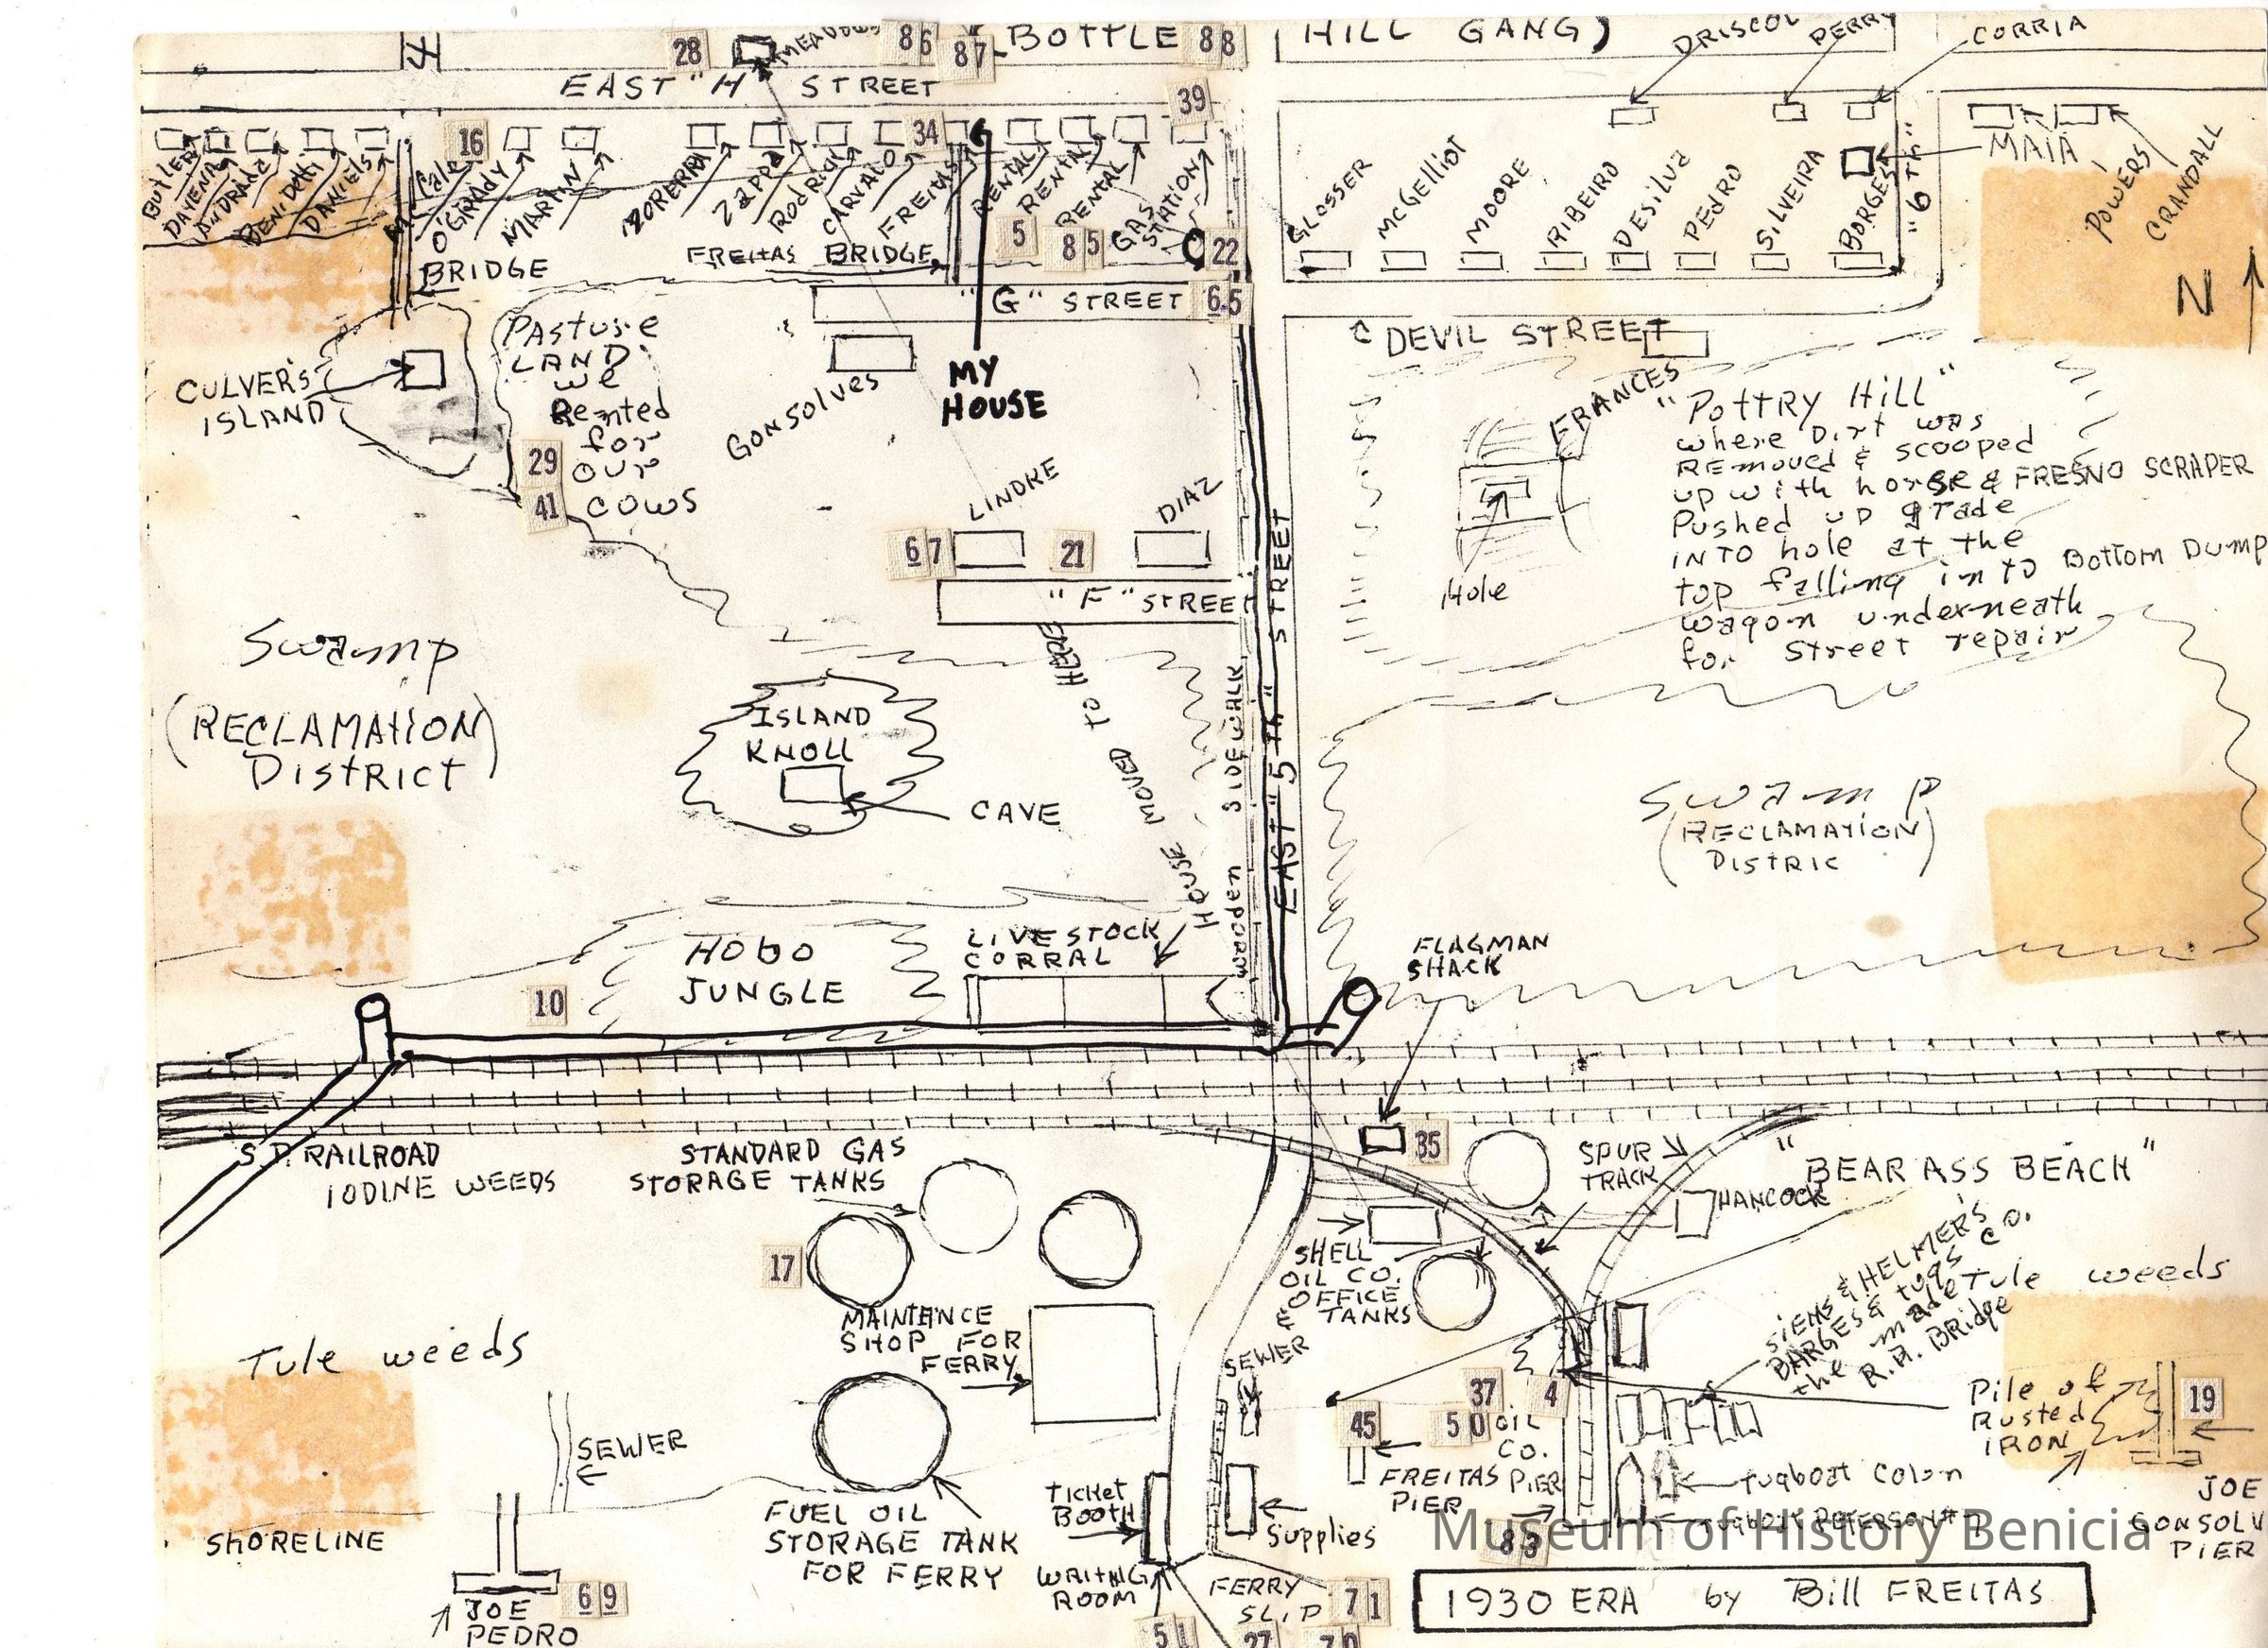 28
MEADOWS
86
87
BOTTLE
88
HILL GANG)
DRISCOL
PERRY
CORRIA
EAST "H" STREET
39
16
34
Butler
DAVENA
ANDRADA
BENIDETTI
DANIELS
McCale
O'GRADY
MARTIN
ZOPERRA
ZAPPA
RODRICK
CARVALO
FREITAS
RENTAL
RENTAL
RENTAL
GAS
STATION
5
85
22
GLOSSER
McGELLIOT
MOORE
RIBEIRO
DESILVA
PEDRO
SILVEIRA
BORGES
"6TH"
MAIA
POWERS
CRANDALL
N
BRIDGE
FREITAS BRIDGE
"G" STREET
6.5
DEVIL STREET
CULVER'S
ISLAND
PASTURE
LAND
we
Rented
for
our
COWS
29
41
GONSOLVES
MY
HOUSE
FRANCES
"POTTRY HILL"
where Dirt was
REMOVED & scooped
up with horse & FRESNO SCRAPER
Pushed up grade
INTO hole at the
top falling into Bottom Dump
wagon underneath
for Street repair
Hole
LINDKE
DIAZ
67
21
"F" STREET
Swamp
(RECLAMATION)
DISTRICT
ISLAND
KNOLL
CAVE
HOUSE MOVED TO HERE
WOODEN SIDEWALK
EAST "5TH" STREET
Swamp
(RECLAMATION)
DISTRIC
HOBO
JUNGLE
LIVESTOCK
CORRAL
FLAGMAN
SHACK
10
S.P. RAILROAD
IODINE WEEDS
STANDARD GAS
STORAGE TANKS
35
SPUR
TRACK
"BEAR ASS BEACH"
HANCOCK
17
SHELL
OIL CO.
OFFICE
& TANKS
SIEMS & HELMER'S
BARGES & tugs CO.
the made
R.R. Bridge
Tule weeds
MAINTENCE
SHOP FOR
FERRY
Tule weeds
SEWER
SEWER
37
4
45
50
OIL
CO.
PIER
FREITAS
PIER
Pile of
Rusted
IRON
19
FUEL OIL
STORAGE TANK
FOR FERRY
TICKET
BOOTH
WAITNIG
ROOM
Supplies
tugboat Colon
tugboat PETERSON #7
JOE
GONSOLV
PIER
SHORELINE
83
Museum of History Benicia
JOE
PEDRO
69
FERRY
SLIP
71
51
27
70
1930 ERA by Bill FREITAS